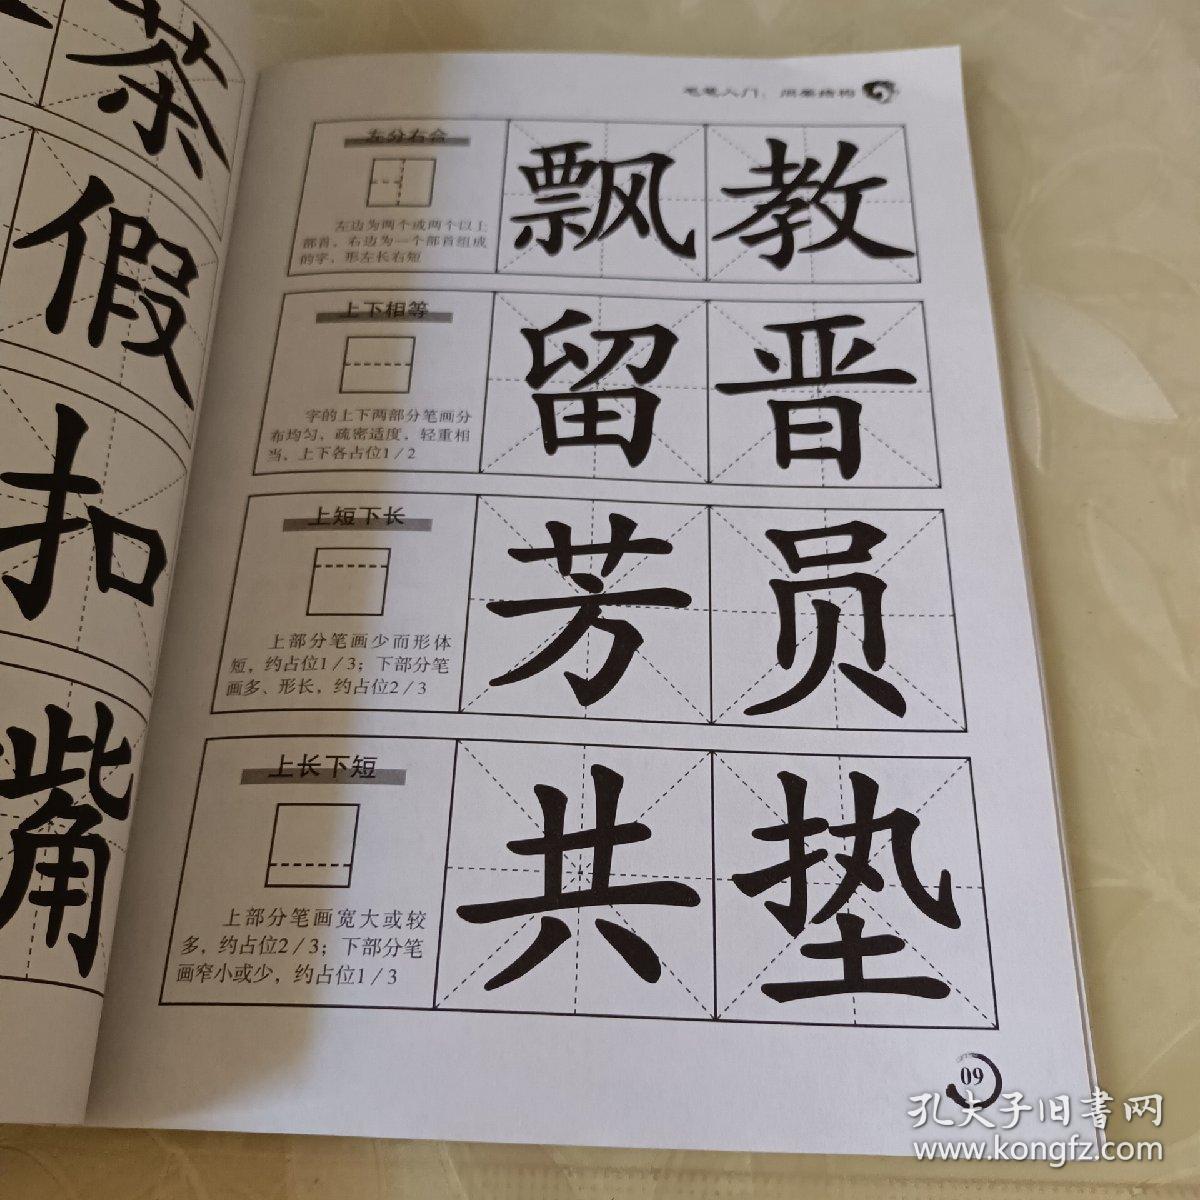 茶
假
扣
嘴
毛笔入门：间架结构
左分右合
左边为两个或两个以上
部首，右边为一个部首组成
的字，形左长右短
飘 教
上下相等
字的上下两部分笔画分
布均匀，疏密适度，轻重相
当，上下各占位1/2
留 晋
上短下长
上部分笔画少而形体
短，约占位1/3；下部分笔
画多、形长，约占位2/3
芳 员
上长下短
上部分笔画宽大或较
多，约占位2/3；下部分笔
画窄小或少，约占位1/3
共 垫
09
孔夫子旧书网
www.kongfz.com